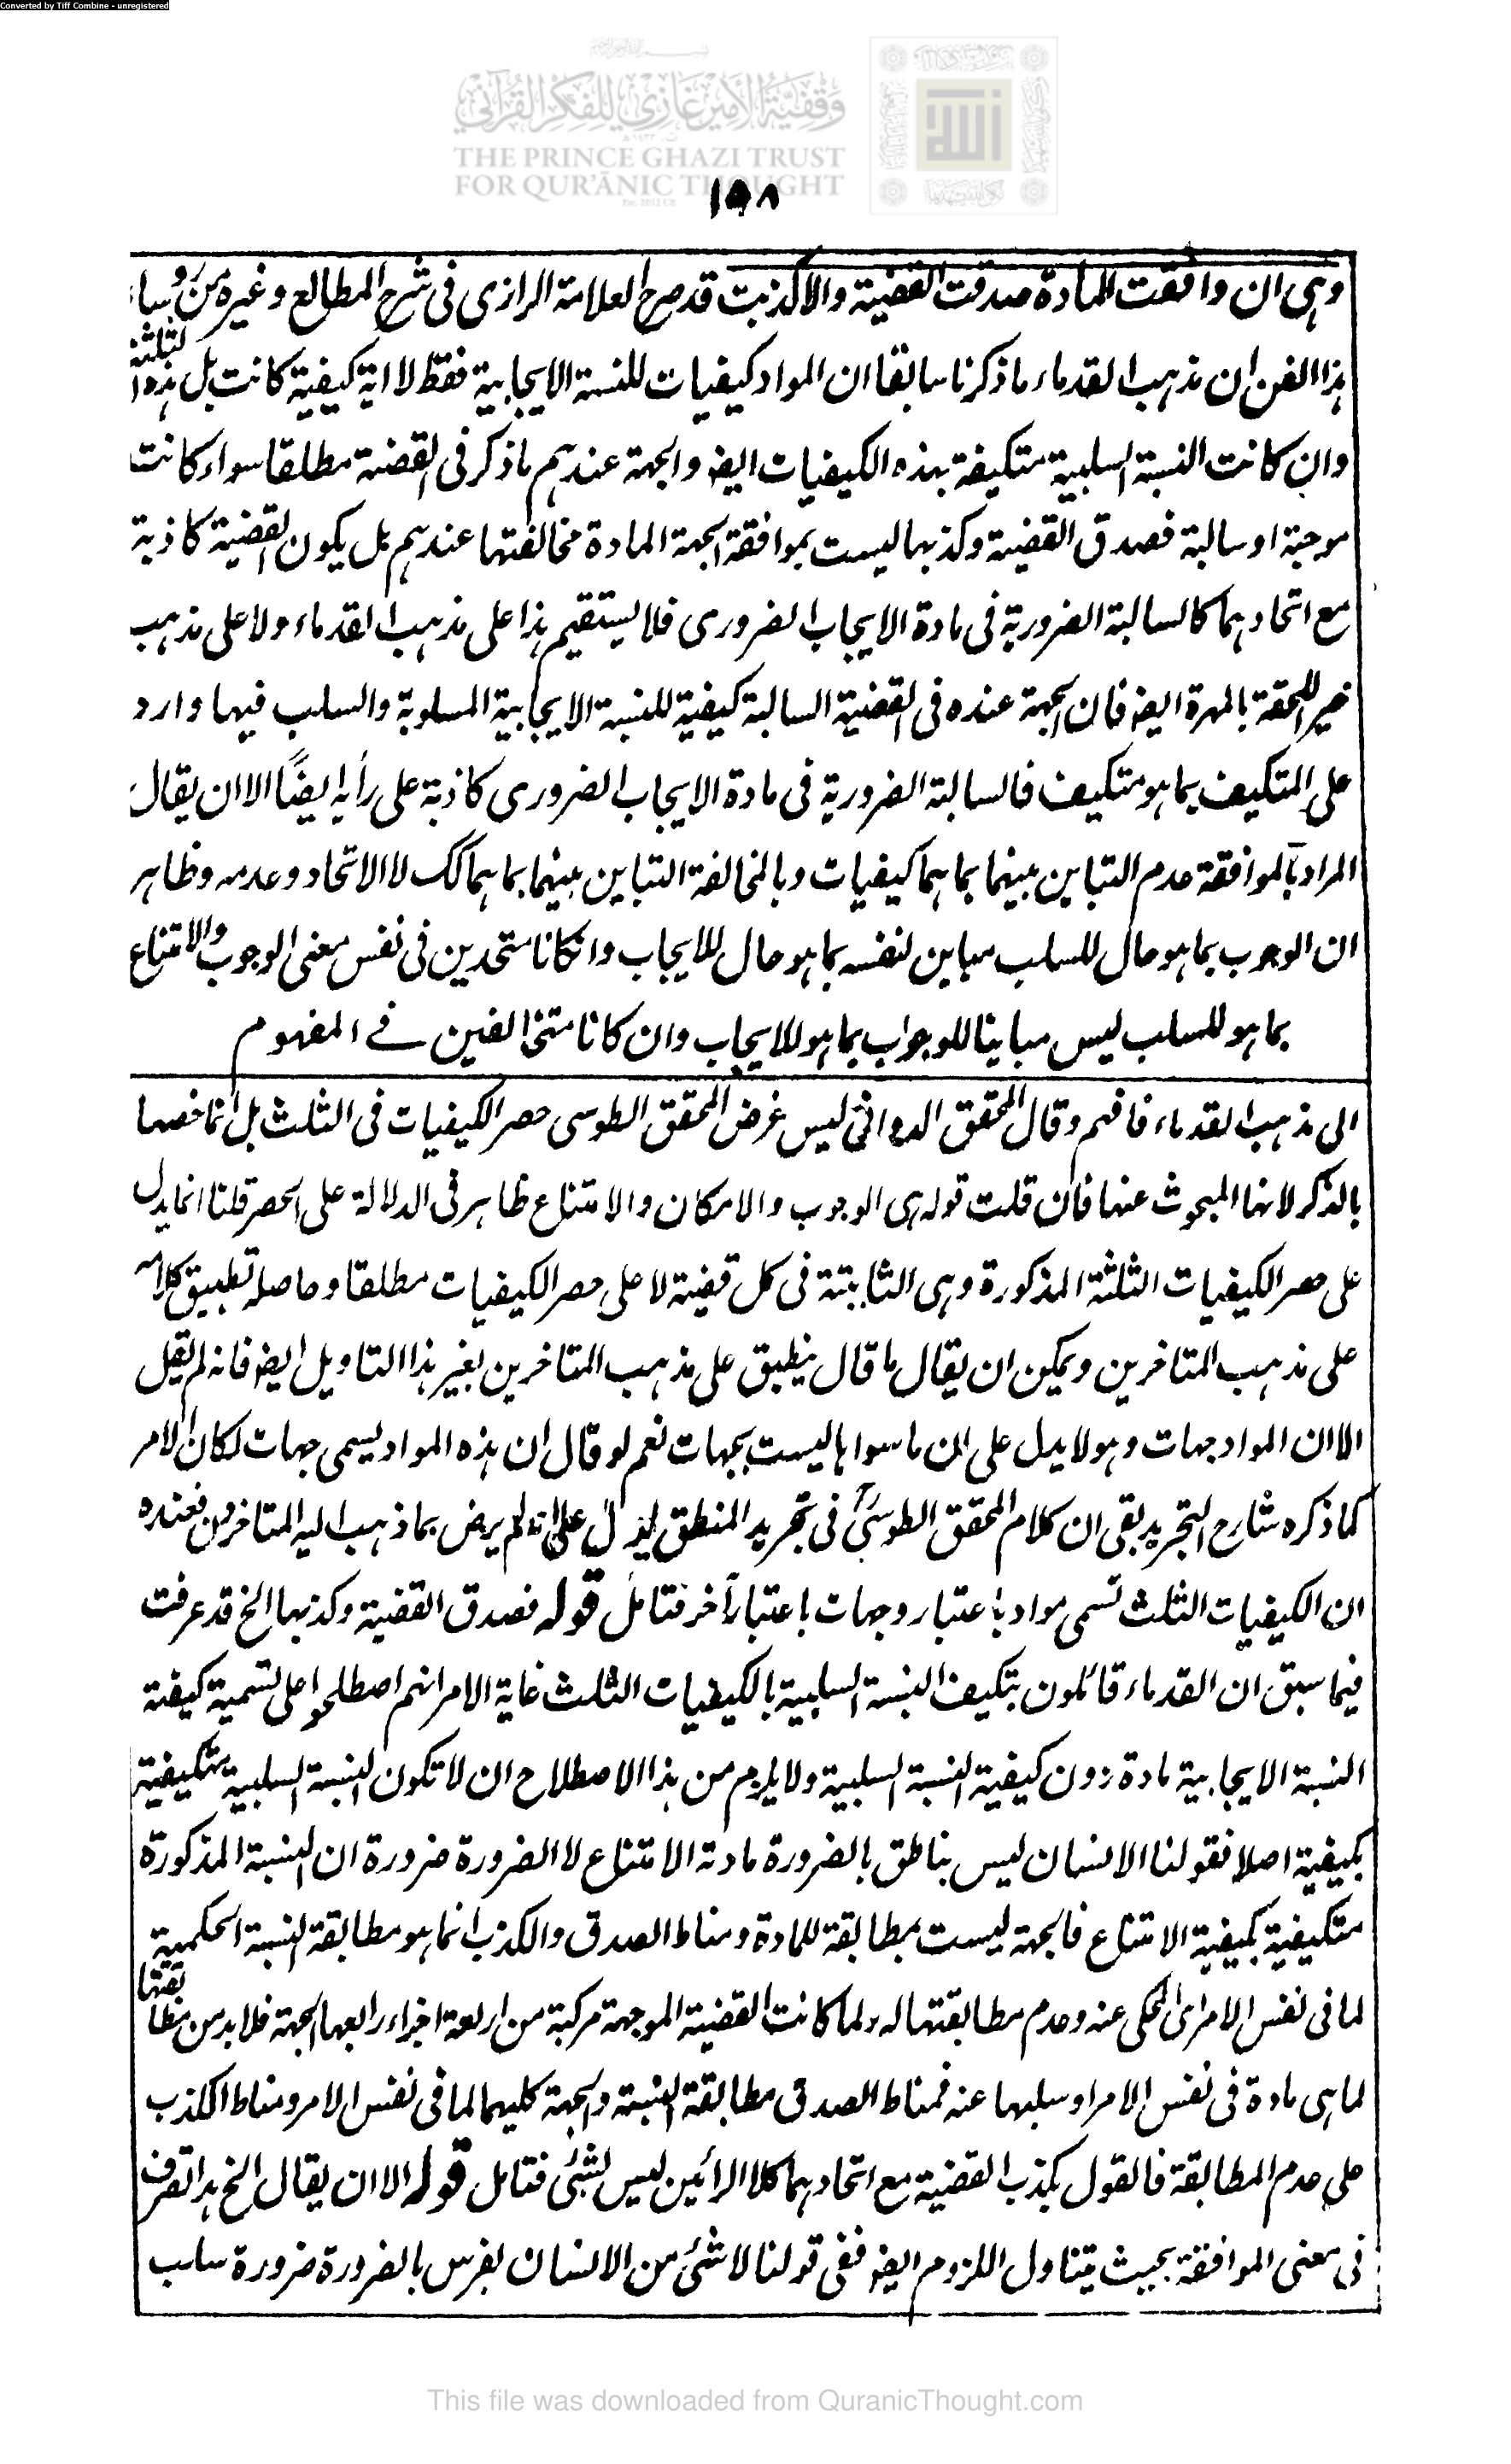 Converted by Tiff Combine - unregistered
وقفية الأمير غازي للفكر القرآني
THE PRINCE GHAZI TRUST
FOR QUR'ĀNIC THOUGHT
١٥٨
وہی ان وافقت المادة صدقت القضیة والا کذبت قد صرح العلامة الرازی فی شرح المطالع وغیرہ من رؤساء
ہذا الفن ان مذہب القدماء ما ذکرنا سابقا ان المواد کیفیات للنسبة الایجابیة فقط لا ایة کیفیة کانت بل ہذہ الثلثة
وان کانت النسبة السلبیة متکیفة بہذہ الکیفیات ایضا والجہة عندہم ما ذکر فی القضیة مطلقا سواء کانت
موجبة او سالبة فصدق القضیة وکذبہا لیست بموافقة الجہة المادة مخالفتہا عندہم بل یکون القضیة کاذبة
مع اتحادہما کالسالبة الضروریة فی مادة الایجاب الضروری فلا یستقیم ہذا علی مذہب القدماء ولا علی مذہب
خیر اللحقة بالمہرة ایضا فان الجہة عندہ فی القضیة السالبة کیفیة للنسبة الایجابیة المسلوبة والسلب فیہا وارد
علی المتکیف بما ہو متکیف فالسالبة الضروریة فی مادة الایجاب الضروری کاذبة علی رأیہ ایضًا الا ان یقال
المراد بالموافقة عدم التباین بینہما بما ہما کیفیات وبالمخالفة التباین بینہما بما ہما کک لا الاتحاد وعدمہ وظاہر
ان الوجوب بما ہو حال للسلب مباین لنفسہ بما ہو حال للایجاب وانکانا متحدین فی نفس معنی الوجوب والامتناع
بما ہو للسلب لیس مباینا للوجواب بما ہو للایجاب وان کانا متخالفین فے المفہوم
الی مذہب القدماء فافہم وقال المحقق الدوانی لیس غرض المحقق الطوسی حصر الکیفیات فی الثلث بل انما خصہا
بالذکر لانہا المبحوث عنہا فان قلت قولہ ہی الوجوب والامکان والامتناع ظاہر فی الدلالة علی الحصر قلنا انما یدل
علی حصر الکیفیات الثلثة المذکورة وہی الثابتة فی کل قضیة لا علی حصر الکیفیات مطلقا وحاصلہ تطبیق کلامہ
علی مذہب المتاخرین ویمکن ان یقال ما قال ینطبق علی مذہب المتاخرین بغیر ہذا التاویل ایضا فانہ لم یقل
الا ان المواد جہات وہو لا یدل علی ان ما سواہا لیست بجہات نعم لو قال ان ہذہ المواد یسمی جہات لکان الامر
کما ذکرہ شارح التجرید بقی ان کلام المحقق الطوسی فی تجرید المنطق یدل علی انہ لم یرض بما ذہب الیہ المتاخرون فعندہ
ان الکیفیات الثلث تسمی مواد باعتبار وجہات باعتبار آخر فتامل قولہ فصدق القضیة وکذبہا الخ قد عرفت
فیما سبق ان القدماء قائلون بتکیف النسبة السلبیة بالکیفیات الثلث غایة الامر انہم اصطلحوا علی تسمیة کیفیة
النسبة الایجابیة مادة دون کیفیة النسبة السلبیة ولا یلزم من ہذا الاصطلاح ان لا تکون النسبة السلبیة متکیفیة
بکیفیة اصلا فقولنا الانسان لیس بناطق بالضرورة مادتہ الامتناع لا الضرورة ضرورة ان النسبة المذکورة
متکیفیة بکیفیة الامتناع فالجہة لیست بمطابقة للمادة ومناط الصدق والکذب انما ہو مطابقة النسبة الحکمیة
لما فی نفس الامر ای المحکی عنہ وعدم مطابقتہا لہ ولما کانت القضیة الموجہة مرکبة من اربعة اجزاء رابعہا الجہة فلا بد من مطابقتہا
لما ہی مادة فی نفس الامر او سلبہا عنہ فمناط الصدق مطابقة النسبة والجہة کلیہما لما فی نفس الامر ومناط الکذب
علی عدم المطابقة فالقول بکذب القضیة مع اتحادہما کلا الرائین لیس بشئی فتامل قولہ الا ان یقال الخ ہذا تصرف
فی معنی الموافقة بحیث یتناول اللزوم ایضا ففی قولنا لا شئی من الانسان بفرس بالضرورة ضرورة سلب
This file was downloaded from QuranicThought.com